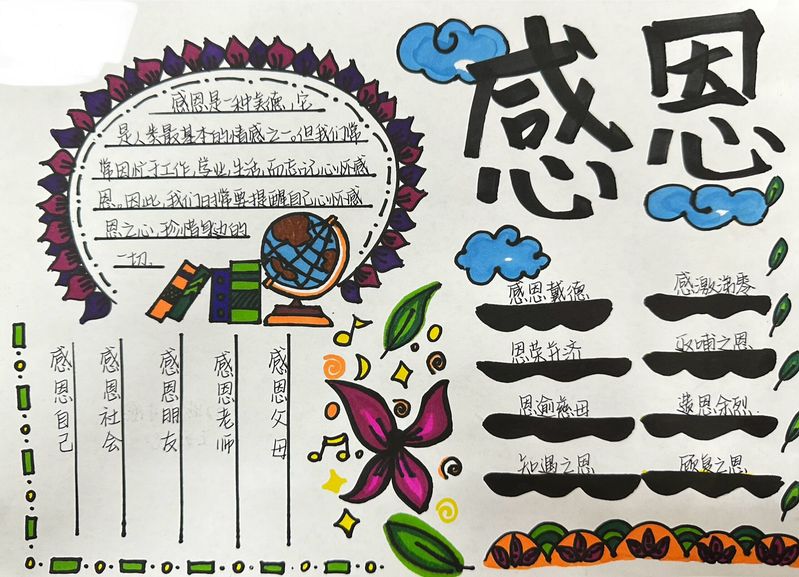 感恩
感恩是一种美德,它
是人类最基本的情感之一。但我们常
常因忙于工作,学业,生活,而忘记心怀感
恩。因此,我们日常要提醒自己心怀感
恩之心,珍惜身边的
一切。
感恩父母
感恩老师
感恩朋友
感恩社会
感恩自己
感恩戴德
感激涕零
恩荣并济
恩逾慈母
遗恩余烈
知遇之恩
顾复之恩